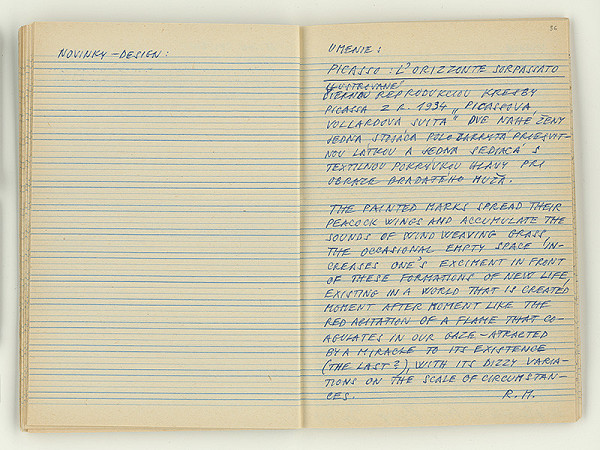 NOVINKY – DESIGN:
36
UMENIE:
PICASSO: L'ORIZZONTE SORPASSATO
ILUSTROVANÉ
ČIERNOU REPRODUKCIOU KRESBY
PICASSA Z R. 1934 „PICASSOVA,
VOLLARDOVA SUITA" DVE NAHÉ ŽENY
JEDNA STOJACA POLOZAKRYTÁ PRIESVIT-
NOU LÁTKOU A JEDNA SEDIACÁ S
TEXTILNOU POKRÝVKOU HLAVY PRI
OBRAZE BRADATÉHO MUŽA.
THE PAINTED MARKS SPREAD THEIR
PEACOCK WINGS AND ACCUMULATE THE
SOUNDS OF WIND WEAVING GRASS,
THE OCCASIONAL EMPTY SPACE IN-
CREASES ONE'S EXCIMENT IN FRONT
OF THESE FORMATIONS OF NEW LIFE,
EXISTING IN A WORLD THAT IS CREATED
MOMENT AFTER MOMENT LIKE THE
RED AGITATION OF A FLAME THAT CO-
AGULATES IN OUR GAZE – ATRACTED
BY A MIRACLE TO ITS EXISTENCE
(THE LAST?), WITH ITS DIZZY VARIA-
TIONS ON THE SCALE OF CIRCUMSTAN-
CES. R.M.